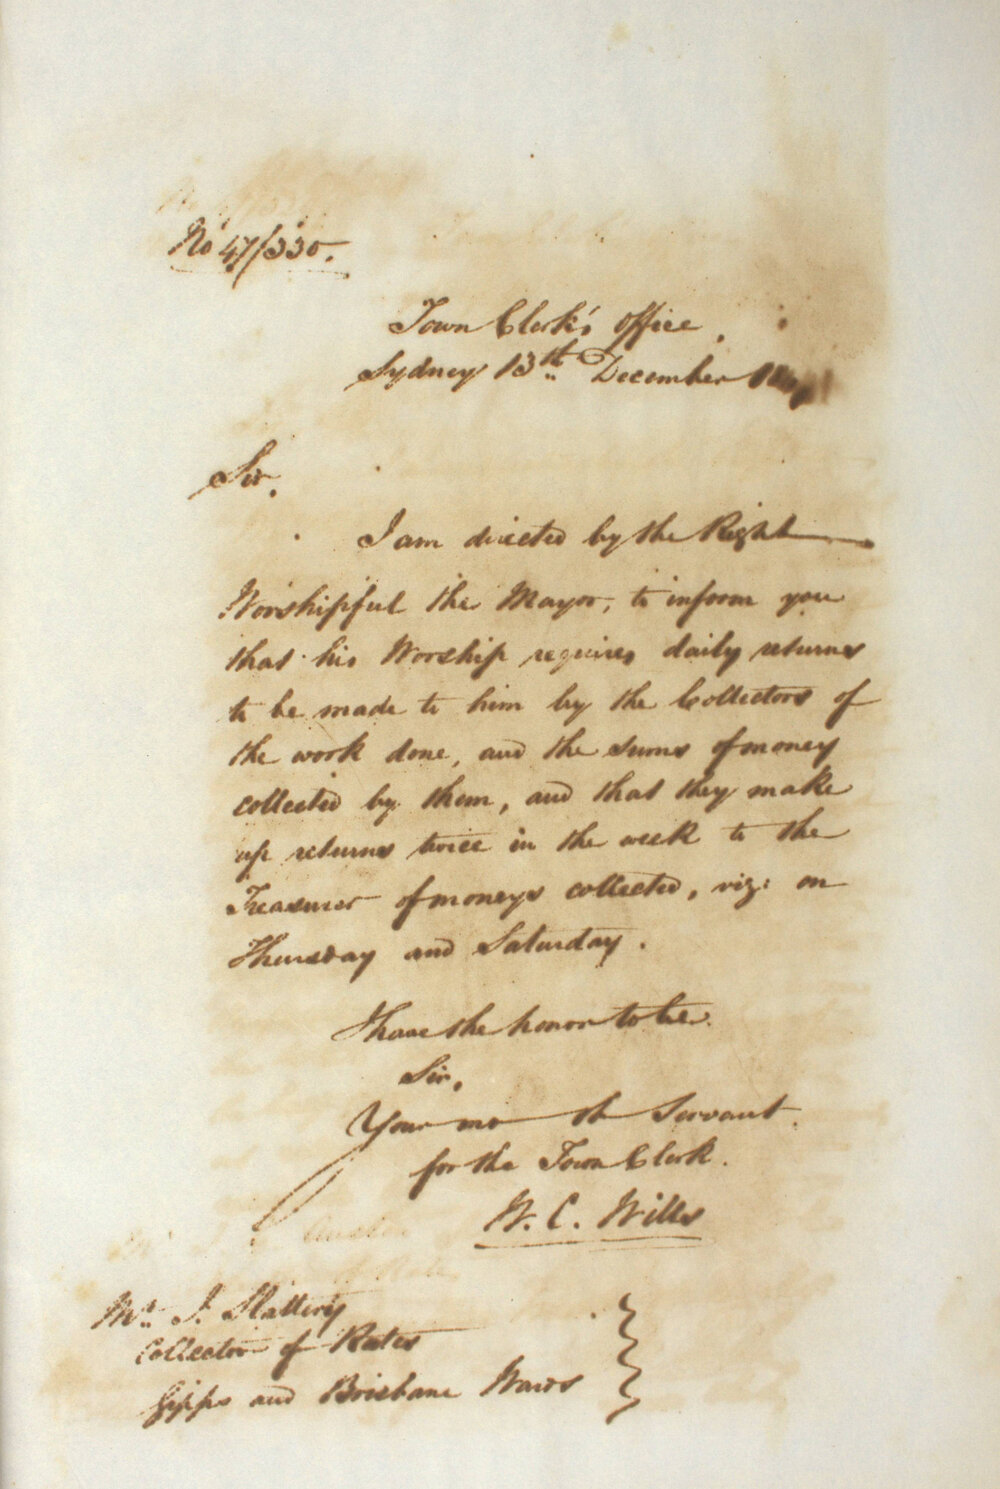 No 47/330.
Town Clerk's Office
Sydney 13th December
Sir,
I am directed by the Right
Worshipful the Mayor, to inform you
that his Worship requires daily returns
to be made to him by the Collectors of
the work done, and the sums of money
collected by them, and that they make
up returns twice in the week to the
Treasurer of moneys collected, viz: on
Thursday and Saturday.
I have the honor to be
Sir,
Your mo ob Servant.
for the Town Clerk.
W. C. Wills
Mr. J. Slattery
Collector of Rates
Gipps and Brisbane Wards